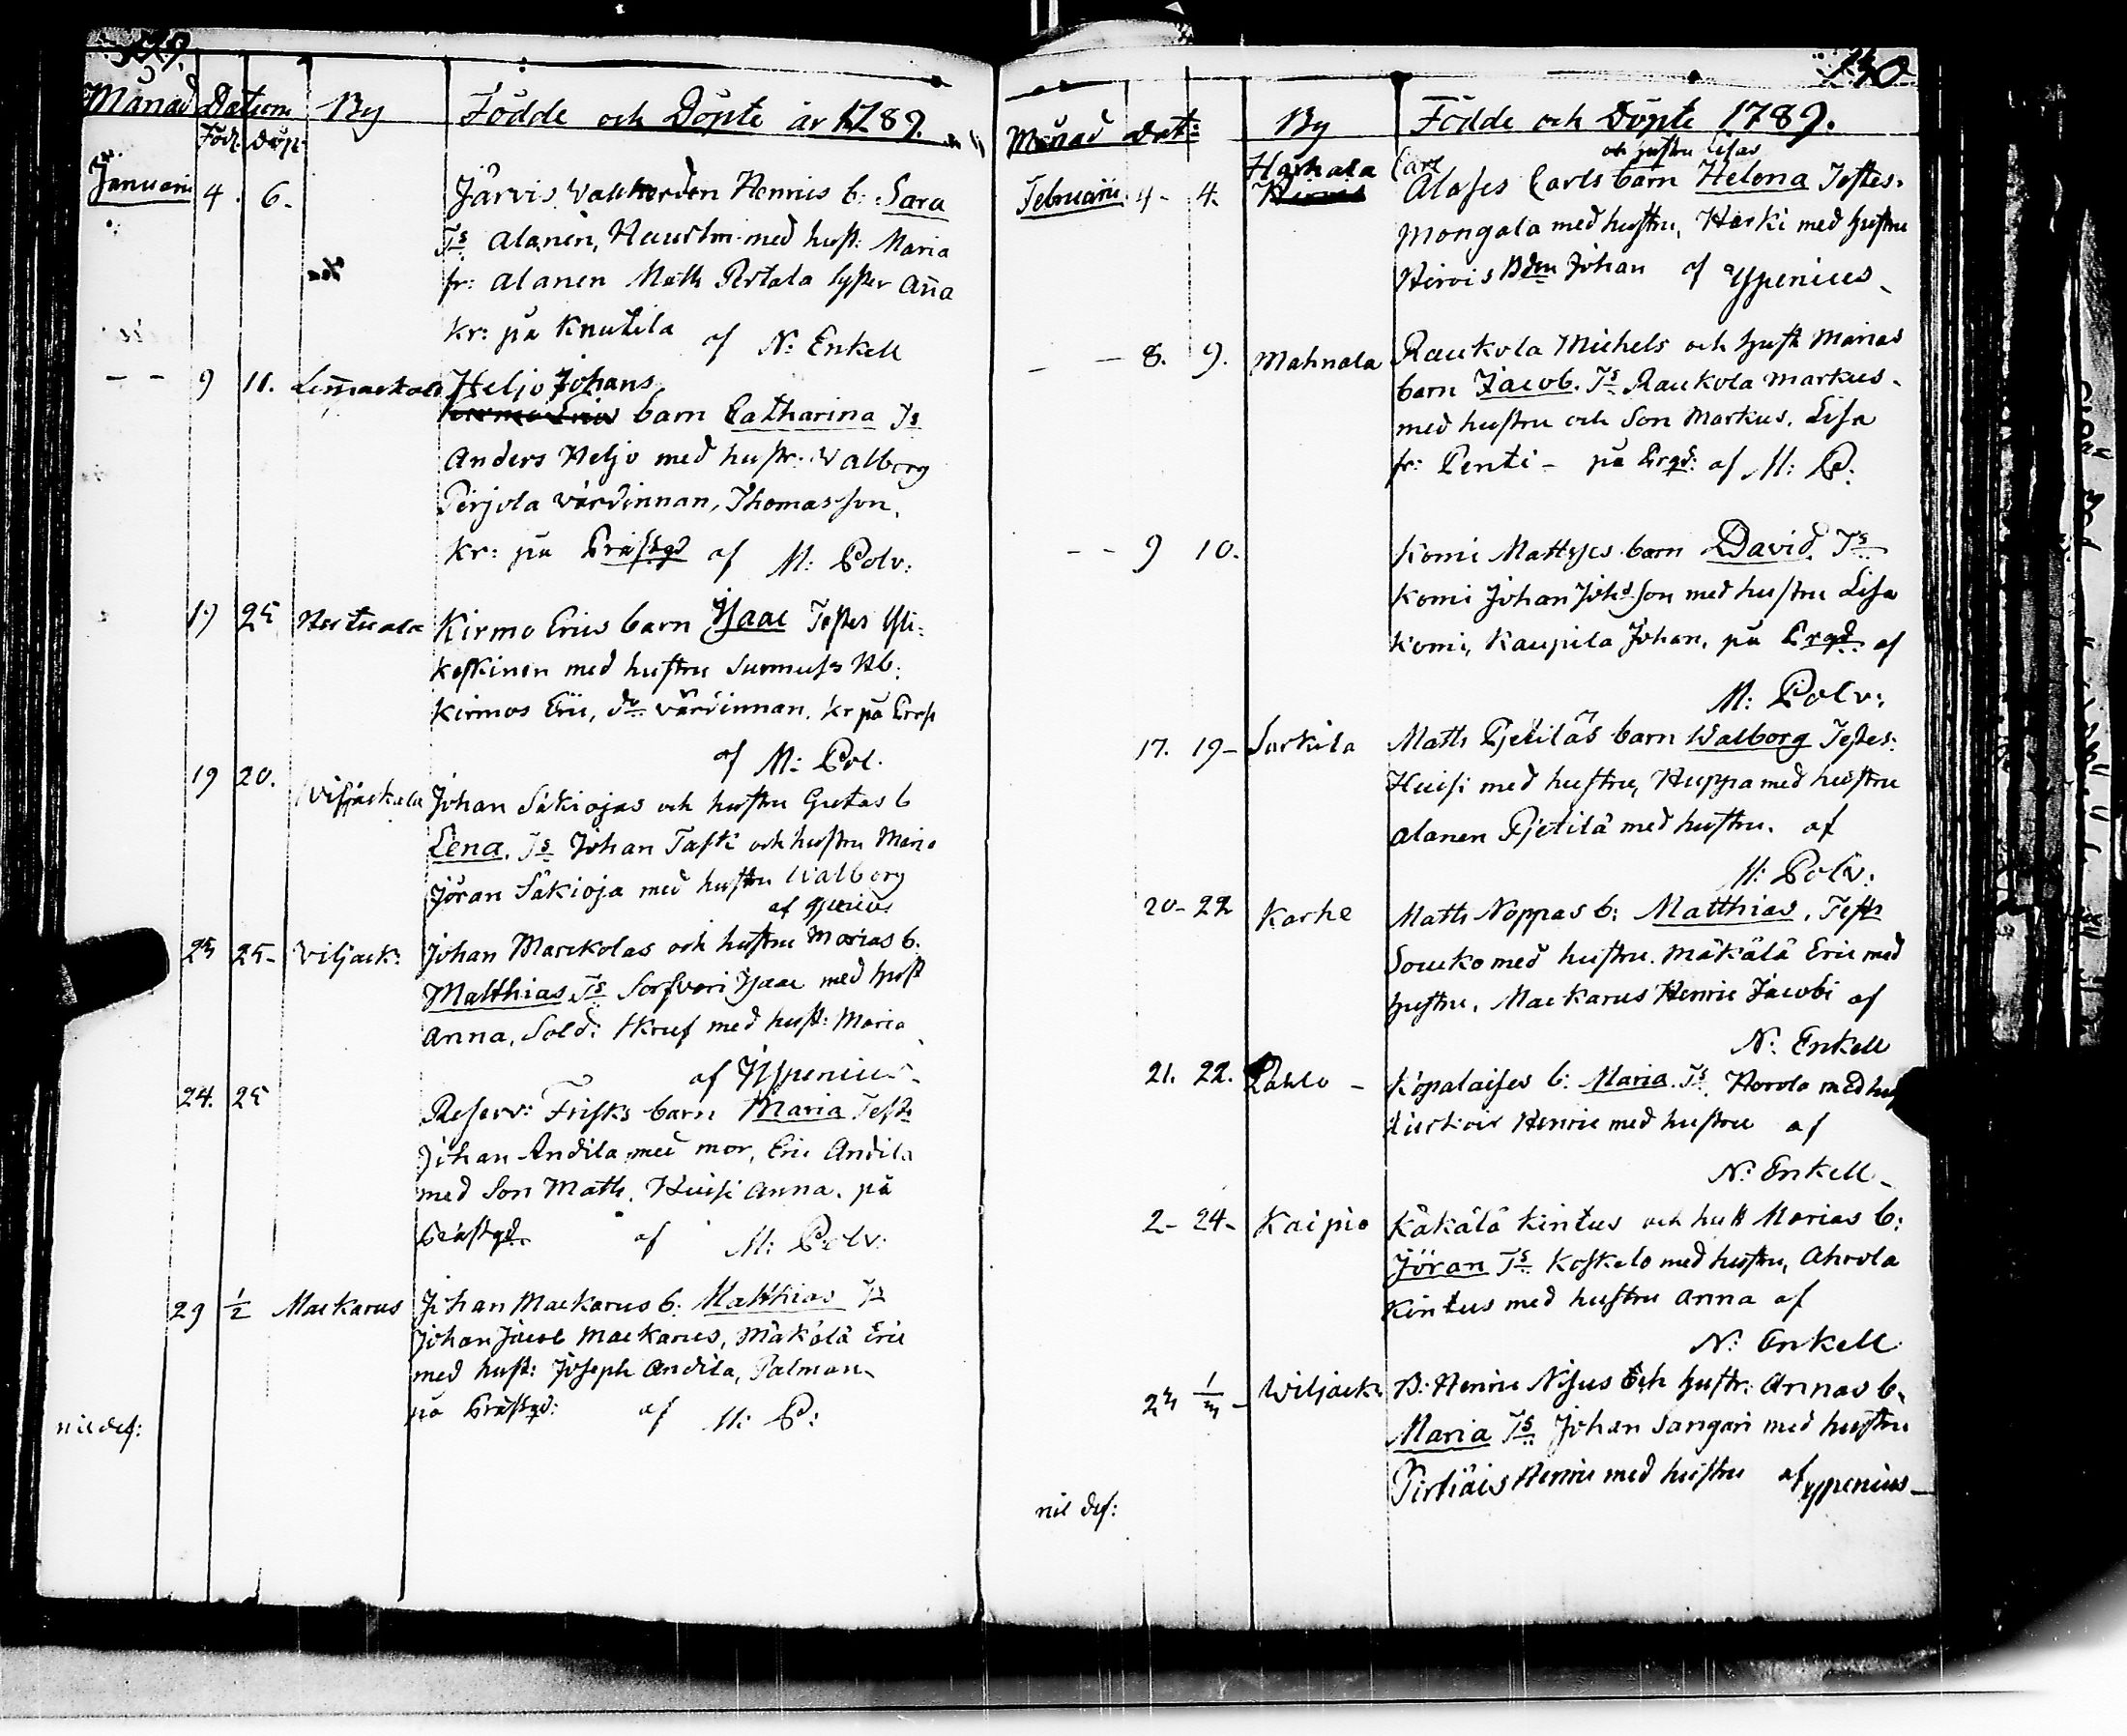 Månad Datum By Födde och Döpte år 1789.
Föd. Döp.
Januarii 4. 6. Järvis Henrics b: Sara
Ts Alanen, med hust: Maria
fr: Alanen Math Pertala syster Anna
kr: på Knutila af N: Enkell
- - 9 11. Heljo Johans
barn Catharina Ts
Anders Heljo med hustr. Walborg
Perjola värdinnan, Thomas son,
kr: på Prästgd af M: Polv:
19 25 Kirmo Erics barn Isaac Testes Yli-
keskinen med hustru
Kirmos Eric, do värdinnan, kr på
af M: Pol.
19 20. Wiljackala Johan Säkiojas och hustru Gretas b
Lena. Ts Johan Taski och hustru Maria
Jöran Säkioja med hustru Walborg
af Ypenius
23 25- Viljack: Johan Marckolas och hustru Marias b.
Matthias Ts Sorfvari Isaac med hust
Anna, Sold: Skruf med hust: Maria
af Yppenius
24. 25 Reserv: Frisks barn Maria Test:
Johan Andila med mor, Eric Andila
med Son Math. Huisi Anna. på
Prästgd. af M: Polv:
29 1/2 Mackarus Johan Mackarus b: Matthias Ts
Johan Jacob Mackarus, Mäkälä Eric
med hust: Joseph Andila, Palman
på Prästgd: af M: P:
nil def:
140.
Månad Dat: By Födde och Döpte 1789.
och hustru Lisas
Harhala Carl
Februarii 4- 4. Alases Carls barn Helena Testes.
Mongola med hustru, Harki med hustru
Hirvis Johan af Ypenius
- 8. 9. Mahnala Raukola Michels och hust Marias
barn Jacob. Ts Raukola Markus
med hustru och Son Markus. Lisa
fr: Penti - på Prgd: af M: P:
- - 9 10. Komi Mattses barn David. Ts
Komi Johan Johs son med hustru Lisa
Komi, Kaupila Johan, på Prgd. af
M: Polv:
17. 19- Sarkila Math Pjetiläs barn Walborg Testes:
Huisi med hustru, Huppa med hustru
Alanen Pjetilä med hustru. af
M: Polv:
20- 22 Karhe Math Noppas b: Matthias, Test:
Souko med hustru. Mäkälä Eric med
hustru, Mackarus Henric Jacobi af
N: Enkell
21. 22. Kopalaises b: Maria. Ts. Horola med
Henric med hustru af
N: Enkell
2- 24- Kaipio Käkälä Kintus och hust Marias b:
Jöran Ts Koskelo med hustru, Ahrola
Kintus med hustru Anna af
N: Enkell
23 1/3 - Wiljack: B: Henric Nisus och hustr: Annas b.
Maria Ts Johan Sangari med hustru
Henric med hustru af Yppenius
nil def: